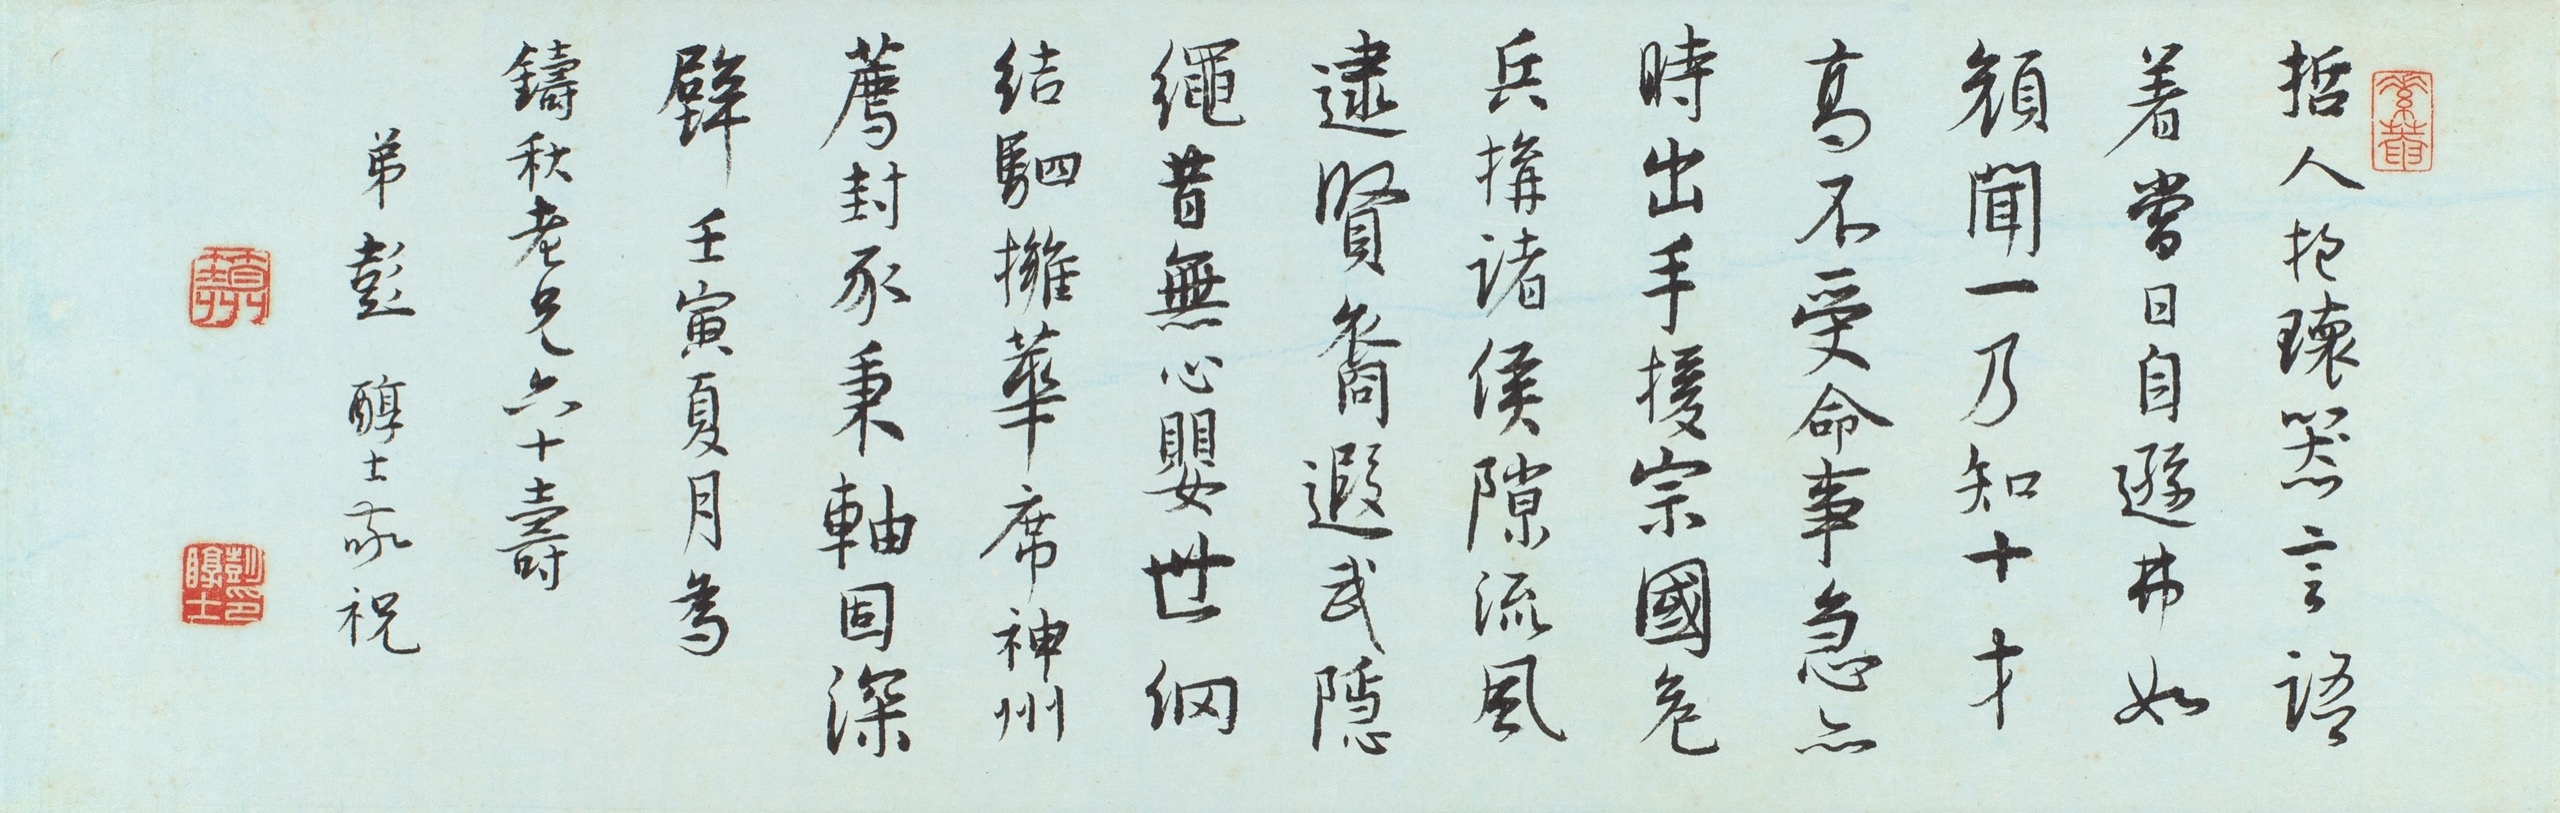 哲人抱瓌器言語
着當日自遜弗如
頑聞一乃知十才
高不受命事急亦
時出手援宗國危
兵搆諸侯隙流風
逮賢裔遐武隱
繩昔無心嬰世網
結駟擁華席神州
薦封豕秉軸固深
辟壬寅夏月為
鑄秋老兄六十壽
弟彭醇士敬祝
彭印醇士